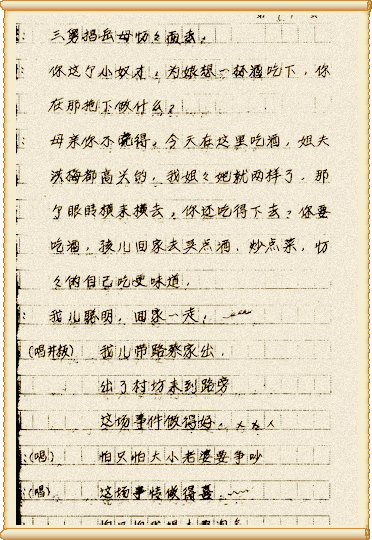 三舅招岳母切々面去。
你这个小奴才，为娘想一杯酒吃下，你
在那拖下做什么？
母亲你不晓得，今天在这里吃酒，姐夫
洪梅都高兴的，我姐々她就两样了，那
个眼睛横来横去，你还吃得下去？你要
吃酒，孩儿回家去买点酒，炒点菜，切
々的自己吃更味道，
我儿聪明，回家一走，
(唱开板) 我儿带路蔡家出，
出了村坊来到路旁
这场事件做得好，
(唱) 怕只怕大小老婆要争吵
(唱) 这场事情做得喜，